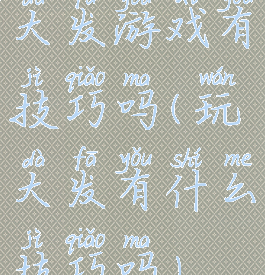 dà fā yóu xì yǒu
大发游戏有
jì qiǎo ma wán
技巧吗(玩
dà fā yǒu shí me
大发有什么
jì qiǎo ma
技巧吗)